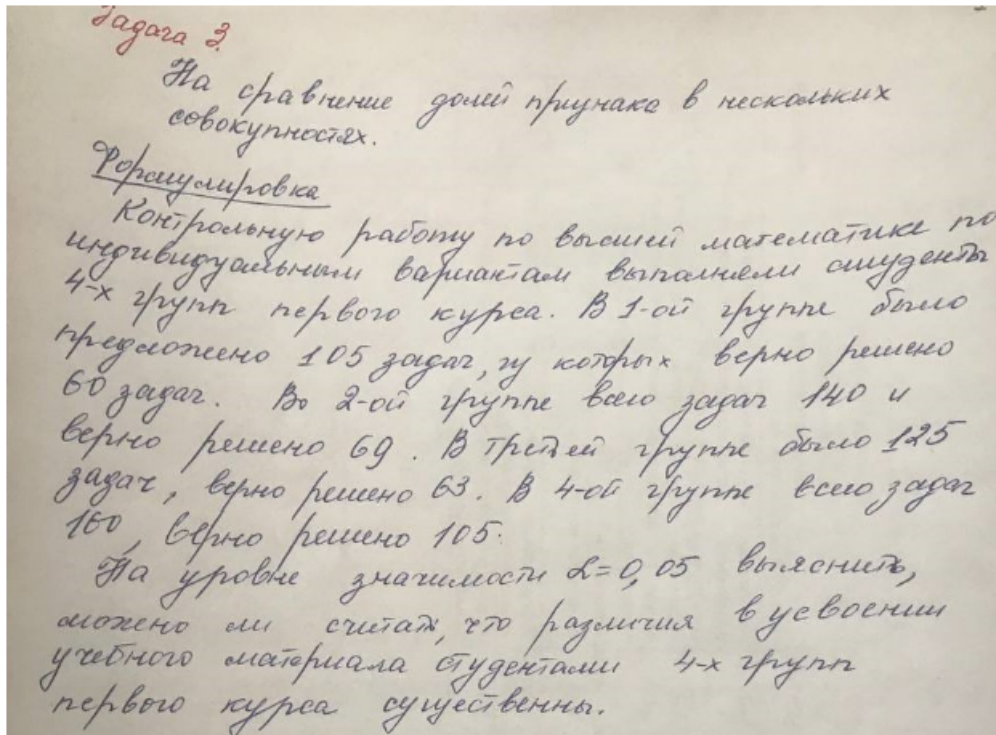 Задача 3.
На сравнение долей признака в нескольких
совокупностях.
Формулировка
Контрольную работу по высшей математике по
индивидуальным вариантам выполняли студенты
4-х групп первого курса. В 1-ой группе было
предложено 105 задач, из которых верно решено
60 задач. Во 2-ой группе всего задач 140 и
верно решено 69. В третей группе было 125
задач, верно решено 63. В 4-ой группе всего задач
160, верно решено 105.
На уровне значимости α=0,05 выяснить,
можно ли считать, что различия в усвоении
учебного материала студентами 4-х групп
первого курса существенны.